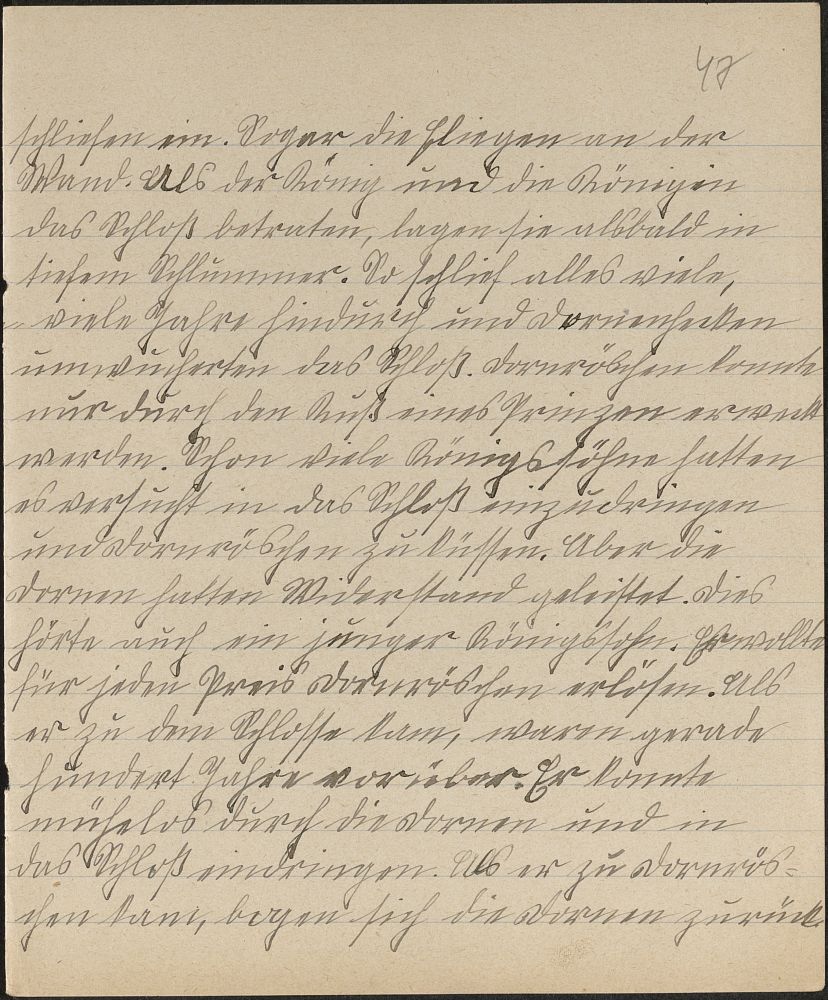 47
schliefen ein. Sogar die Fliegen an der
Wand. Als der König und die Königin
das Schloß betraten, lagen sie alsbald in
tiefem Schlummer. So schlief alles viele,
viele Jahre hindurch und Dornenhecken
umwucherten das Schloß. Dornröschen konnte
nur durch den Kuß eines Prinzen erweckt
werden. Schon viele Königssöhne hatten
es versucht in das Schloß einzudringen
und Dornröschen zu küssen. Aber die
Dornen hatten Widerstand geleistet. Dies
hörte auch ein junger Königssohn. Er wollte
für jeden Preis Dornröschen erlösen. Als
er zu dem Schlosse kam, waren gerade
hundert Jahre vorüber. Er konnte
mühelos durch die Dornen und in
das Schloß eindringen. Als er zu Dornrös=
chen kam, bogen sich die Dornen zurück.